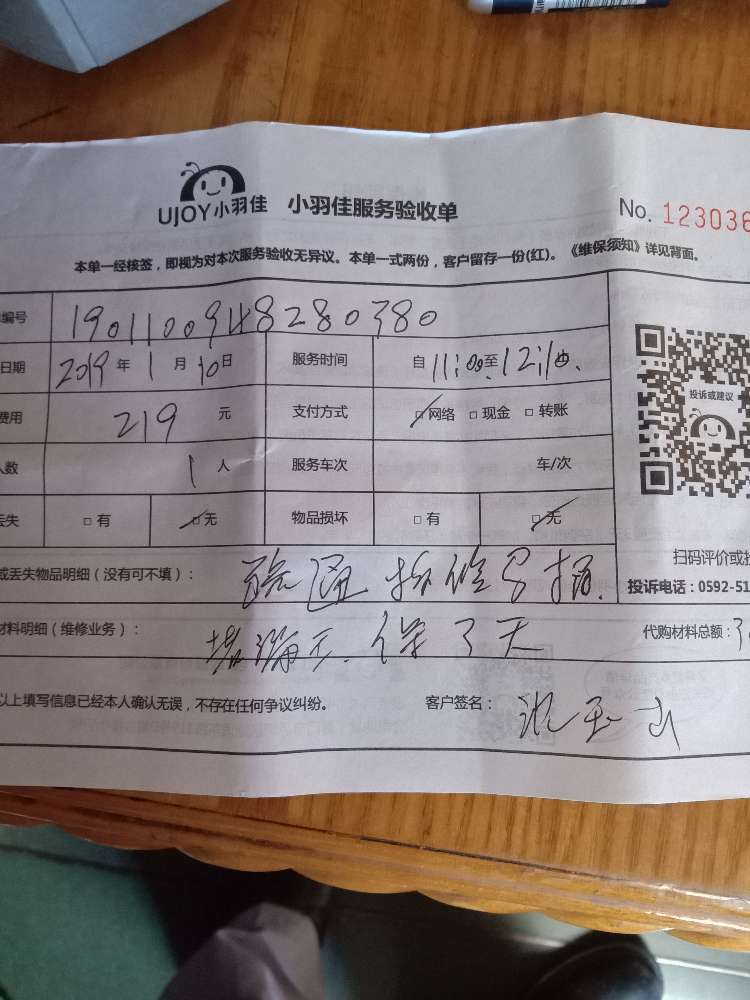 UJOY小羽佳 小羽佳服务验收单 No. 123036
本单一经核签，即视为对本次服务验收无异议。本单一式两份，客户留存一份(红)。《维保须知》详见背面。
编号 1901100948280380
日期 2019年1月10日 服务时间 自11:00至12:10
投诉或建议
费用 219元 支付方式 网络 现金 转账
人数 1人 服务车次 车/次
丢失 有 无 物品损坏 有 无
扫码评价或投
或丢失物品明细（没有可不填）： 疏通
投诉电话：0592-51
材料明细（维修业务）： 保7天
代购材料总额：
以上填写信息已经本人确认无误，不存在任何争议纠纷。 客户签名：